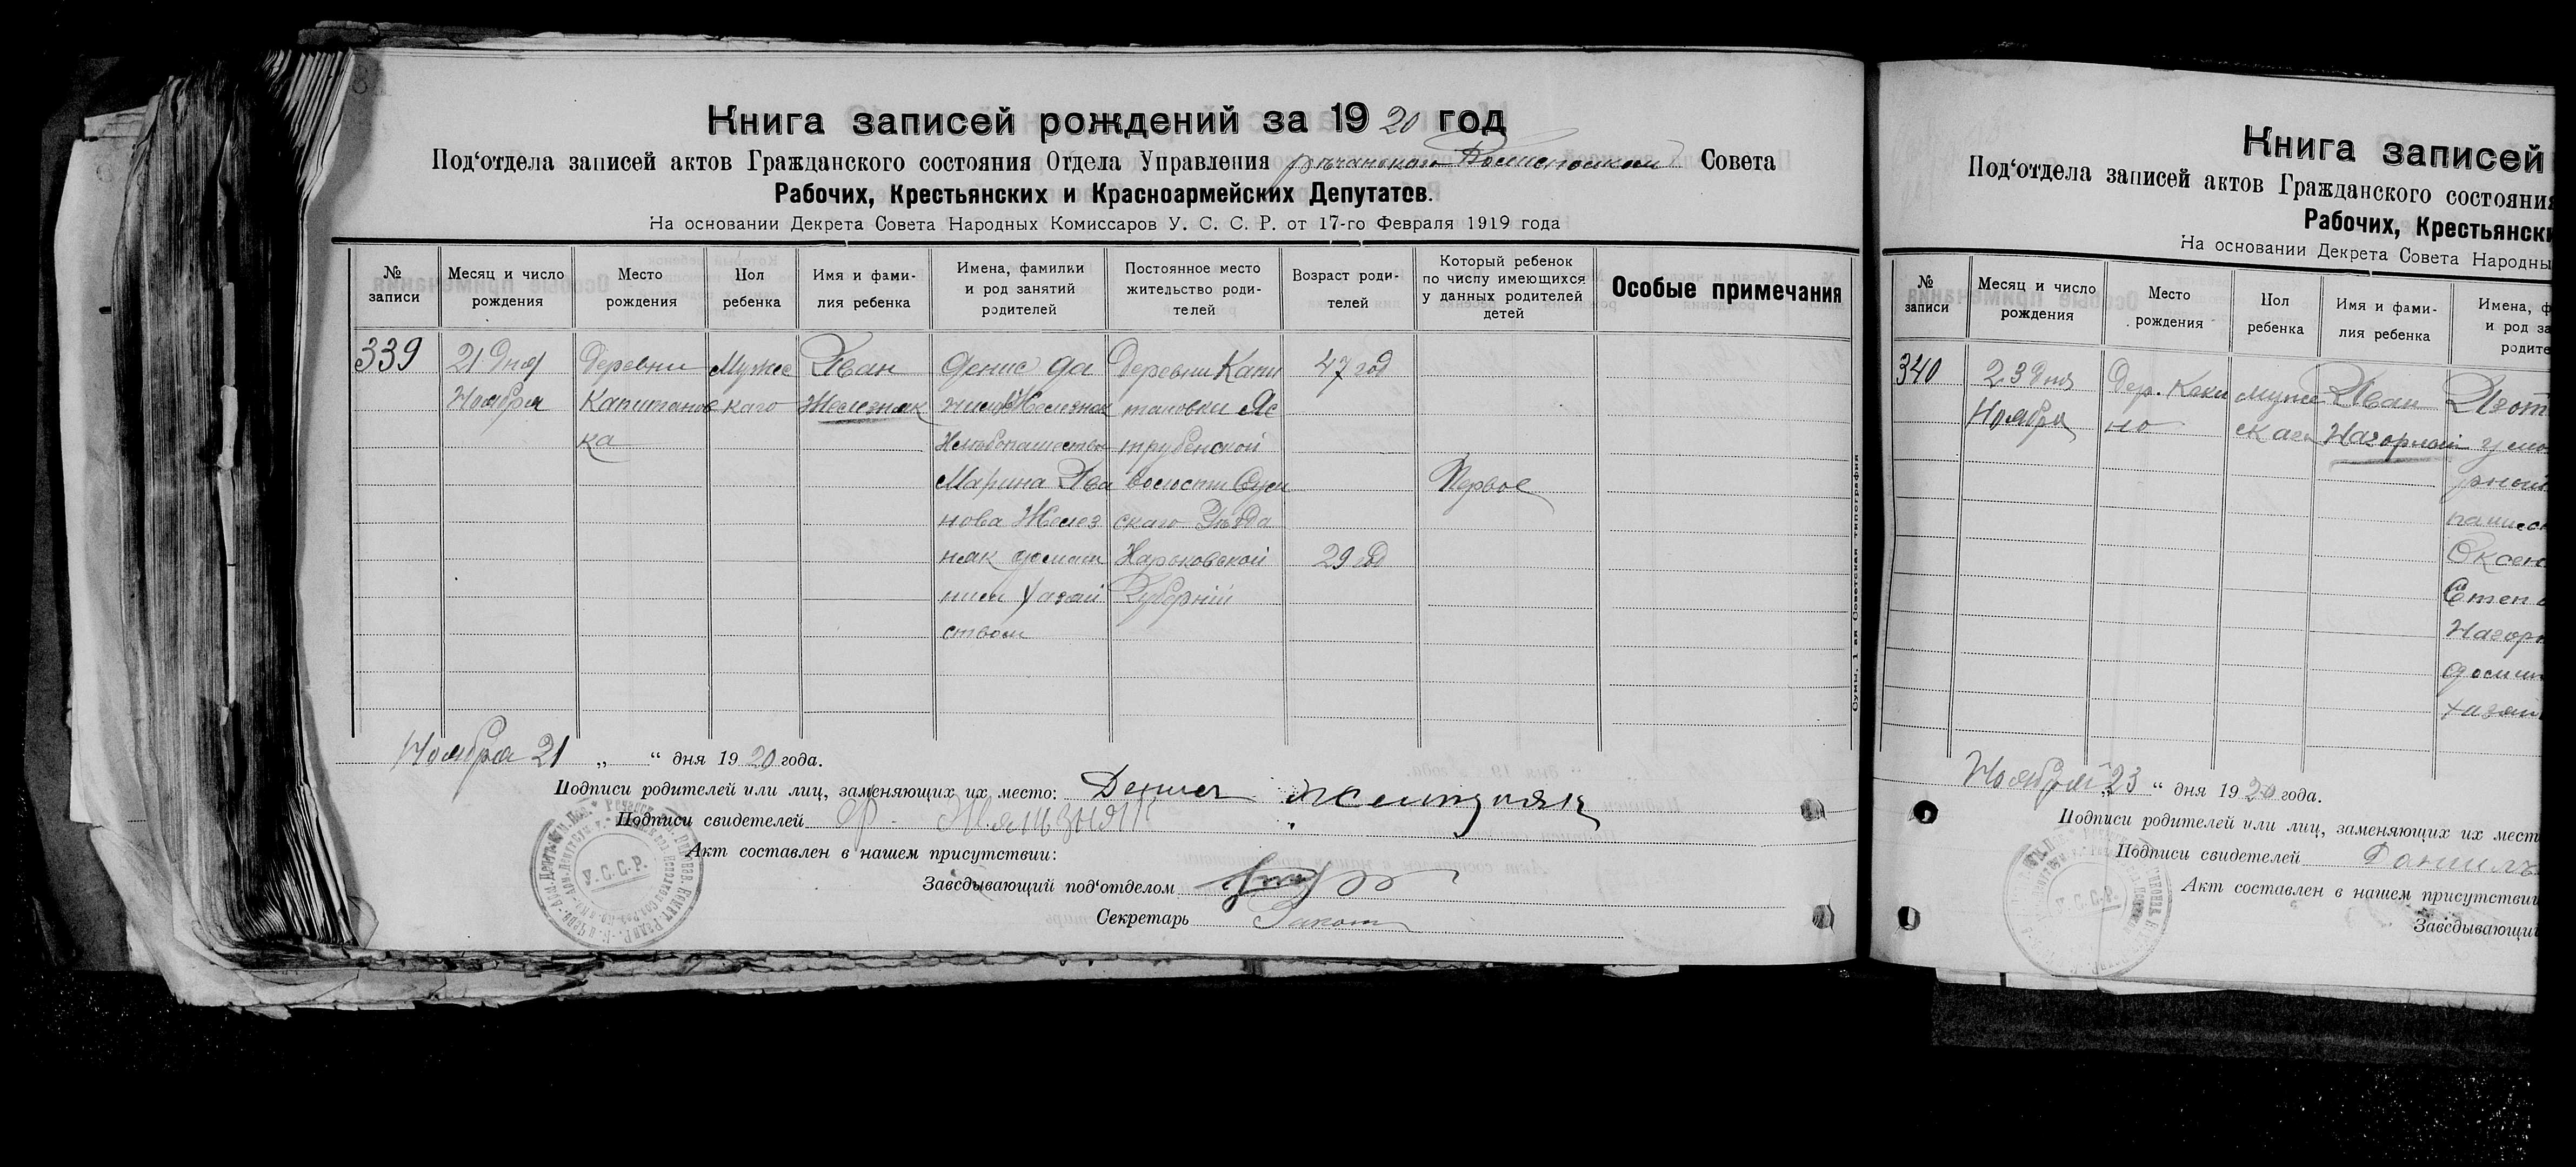 Книга записей рождений за 1920 год
Под‘отдела записей актов Гражданского состояния Отдела Управления Совета
Рабочих, Крестьянских и Красноармейских Депутатов.
На основании Декрета Совета Народных Комиссаров У. С. С. Р. от 17-го Февраля 1919 года
№ записи
Месяц и число рождения
Место рождения
Пол ребенка
Имя и фами-
лия ребенка
Имена, фамилки
и род занятий
родителей
Постоянное место
жительство роди-
телей
Возраст роди-
телей
Который ребенок
по числу имеющихся
у данных родителей
детей
Особые примечания
339
21 дня
Ноября
Деревни
Капитанов
ка
Мужес
каго
Иван
Железняк
Денис Да
Хлебопашество
Марина Ива
нова Желез
няк домаш
ним хазяй
ством
Деревни Капи
тановки Яс
трубенской
волости Сум
скаго Уезда
Харьковской
Губернии
47 год
29 год
Первое
Ноября 21 „ “ дня 1920 года.
Подписи родителей или лиц, заменяющих их место: Денис
Подписи свидетелей
Акт составлен в нашем присутствии:
Заведывающий под‘отделом
Секретарь
У.С.С.Р.
Сумы, 1-ая Советская типография
Книга записей
Под‘отдела записей актов Гражданского состояния
Рабочих, Крестьянски
На основании Декрета Совета Народны
№ записи
Месяц и число рождения
Место рождения
Пол ребенка
Имя и фами-
лия ребенка
Имена, ф
и род за
родите
340
23 дня
Ноября
Дер.
но
муже
скаго
Иван
Нагорный
Степа
Нагорн
домаш
хазяй
23 “ дня 1920 года.
Подписи родителей или лиц, заменяющих их мест
Подписи свидетелей
Акт составлен в нашем присутствии
Заведывающий
У.С.С.Р.